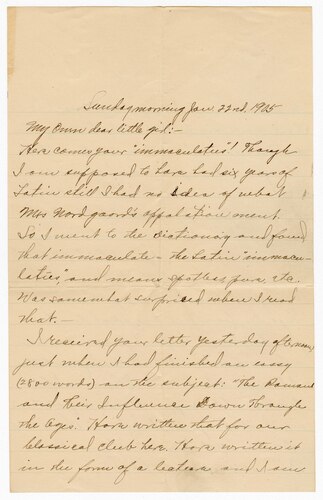 Sunday morning Jan 22nd, 1905
My Own dear little girl:-
Here comes your "immaculatus"! Though
I am supposed to have had six years of
Latin still I had no idea of what
Mrs Nordgaard's appalation ment
So I went to the dictionary and found
that immaculate - the Latin "immacu-
latus," and means spotless, pure, etc.
Was somewhat surprised when I read
that.-
I received your letter yesterday afternoon,
just when I had finished an essay
(2800 words) on the subject: The Romans
and their Influence Down Through
the Ages. Have written that for our
Classical club here. Have written it
in the form of a lecture and I am